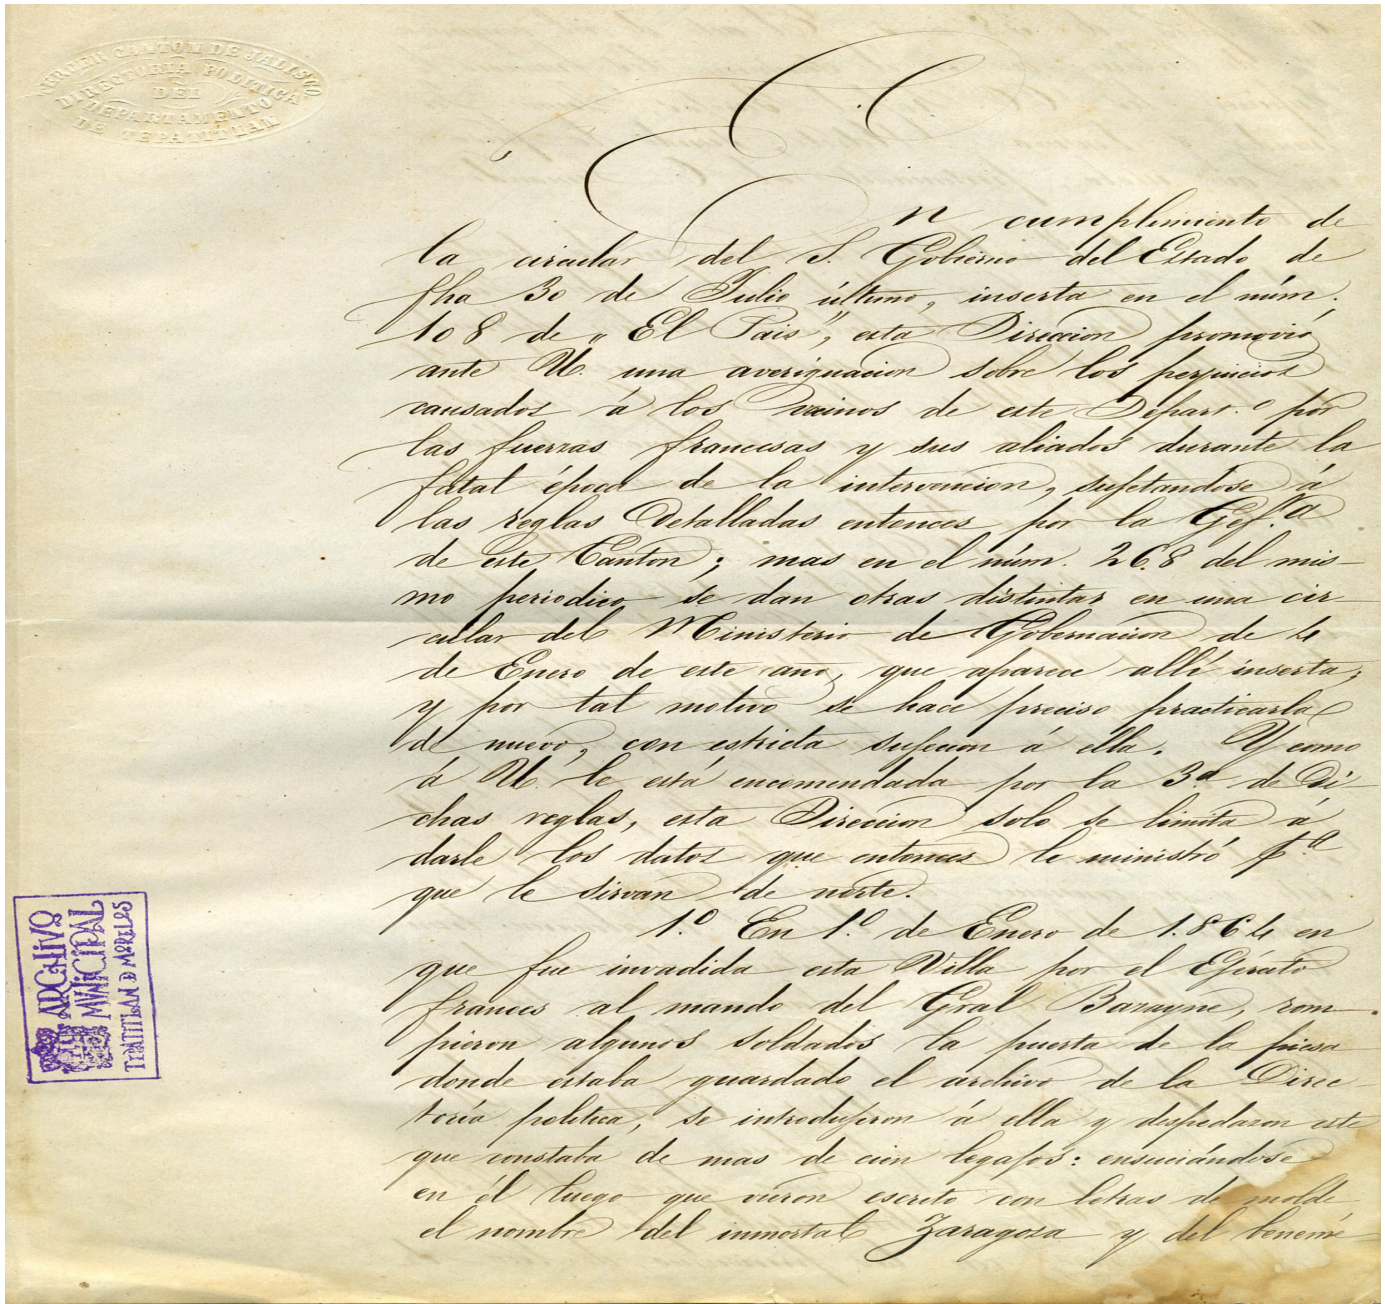 TERCER CANTON DE JALISCO
DIRECTORIA POLITICA
DEL
DEPARTAMENTO
DE TEPATITLAN
En cumplimiento de
la circular del S. Gobierno del Estado de
fha 30 de Julio último, inserta en el núm.
108 de „El Pais”, esta Direccion promovió
ante U. una averiguacion sobre los perjuicios
causados á los vecinos de este Depart.º por
las fuerzas francesas y sus aliados durante la
fatal época de la intervencion, sujetandose á
las reglas detalladas entonces por la Gef.ª
de este Canton; mas en el núm. 268 del mis-
mo periodico se dan otras distintas en una cir-
cular del Ministerio de Gobernacion de 4
de Enero de este ano, que aparece allí inserta,
y por tal motivo se hace preciso practicarla
de nuevo, con estricta sujecion á ella. Y como
á U. le está encomendada por la 3ª de di-
chas reglas, esta Direccion solo se limita á
darle los datos que entonces le ministró pª
que le sirvan de norte.
1.º En 1.º de Enero de 1.864 en
que fue invadida esta Villa por el Ejército
frances al mando del Gral Bazayne, rom-
pieron algunos soldados la puerta de la piesa
donde estaba guardado el archivo de la Direc-
toria politica, se introdujeron á ella y despedazon este
que constaba de mas de cien legajos: ensuciándose
en él luego que vieron escrito con letras de molde
el nombre del inmortal Zaragoza y del benemé-
ARCHIVO
MUNICIPAL
TEPATITLAN D MORELOS